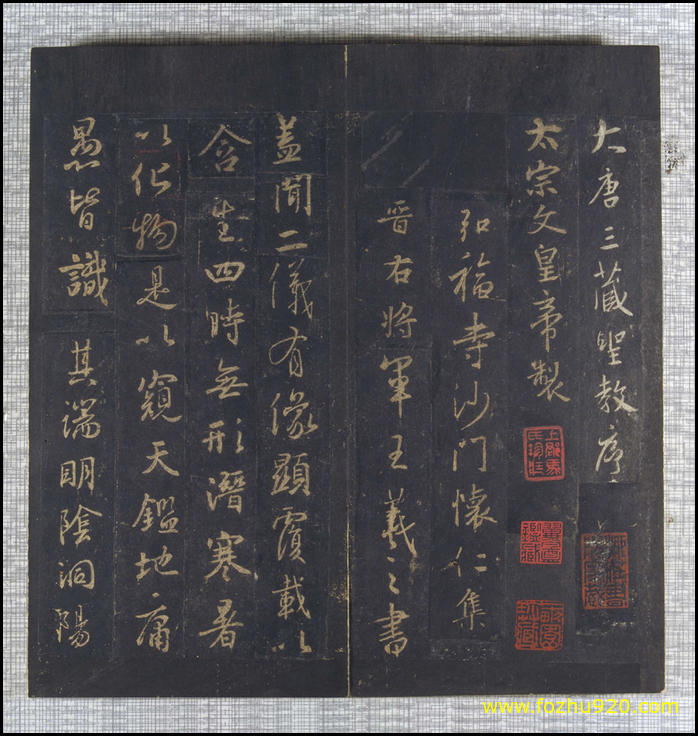 大唐三藏聖教序
太宗文皇帝製
弘福寺沙門懷仁集
晉右將軍王羲之書
蓋聞二儀有像顯覆載以
含生四時無形潛寒暑
以化物是以窺天鑑地庸
愚皆識其端明陰洞陽
www.fozhu920.com